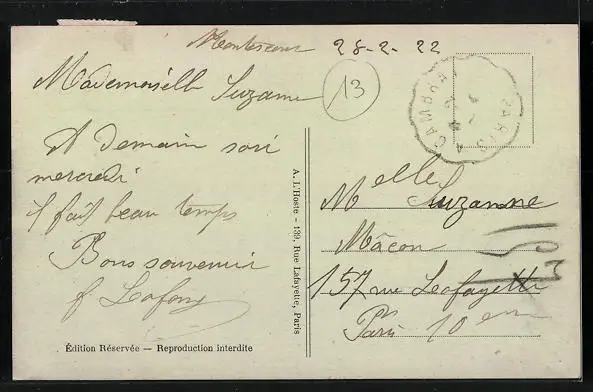 28-2-22
Mademoiselle Suzanne
13
A demain soir
mercredi
il fait beau temps
Bons souvenir
f Lafony
Édition Réservée — Reproduction interdite
A. L'Hoste - 139, Rue Lafayette, Paris
CAMBRAI
PARIS
Melle Suzanne
Mâcon
157 rue Lafayette
Paris 10 em